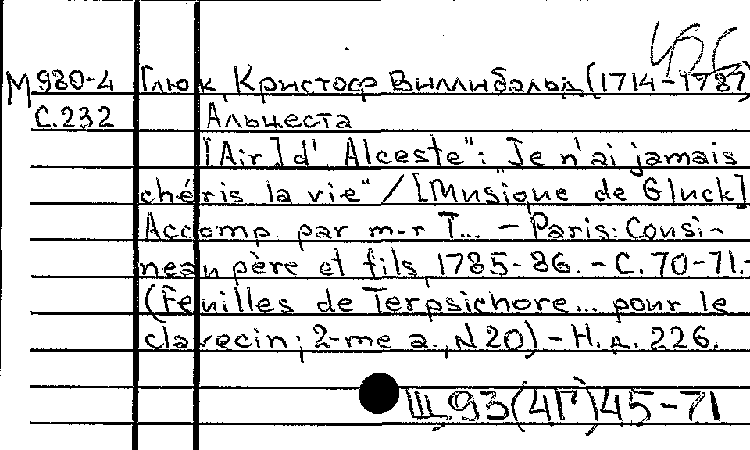 456
М 980-4 Глюк, Кристоф Виллибальд (1714-1787)
С.232 Альцеста
[Air] d' Alceste": "Je n'ai jamais
chéris la vie" / [Musique de Gluck]
Accomp. par m-r T... - Paris: Cousi-
neau père et fils, 1785-86. - С. 70-71.-
(Feuilles de Terpsichore... pour le
clavecin; 2-me a., N 20) - Н.д. 226.
Щ93(4Г)45-71